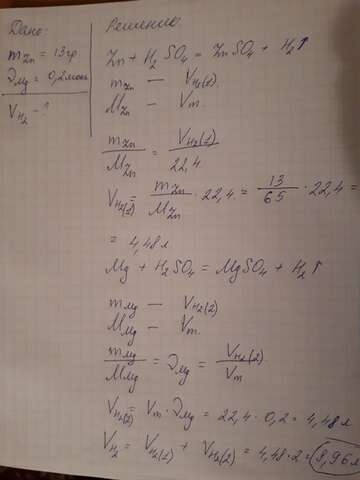 Дано:
m Zn = 13гр
ν Mg = 0,2моль
V H₂ - ?
Решение:
Zn + H₂SO₄ = ZnSO₄ + H₂↑
m Zn — V H₂(1).
M Zn — Vm.
m Zn / M Zn = V H₂(1) / 22,4
V H₂(1) = m Zn / M Zn · 22,4 = 13 / 65 · 22,4 =
= 4,48 л
Mg + H₂SO₄ = MgSO₄ + H₂↑
m Mg — V H₂(2)
M Mg — Vm.
m Mg / M Mg = ν Mg = V H₂(2) / Vm
V H₂(2) = Vm · ν Mg = 22,4 · 0,2 = 4,48 л
V H₂ = V H₂(1) + V H₂(2) = 4,48 · 2 = 8,96 л